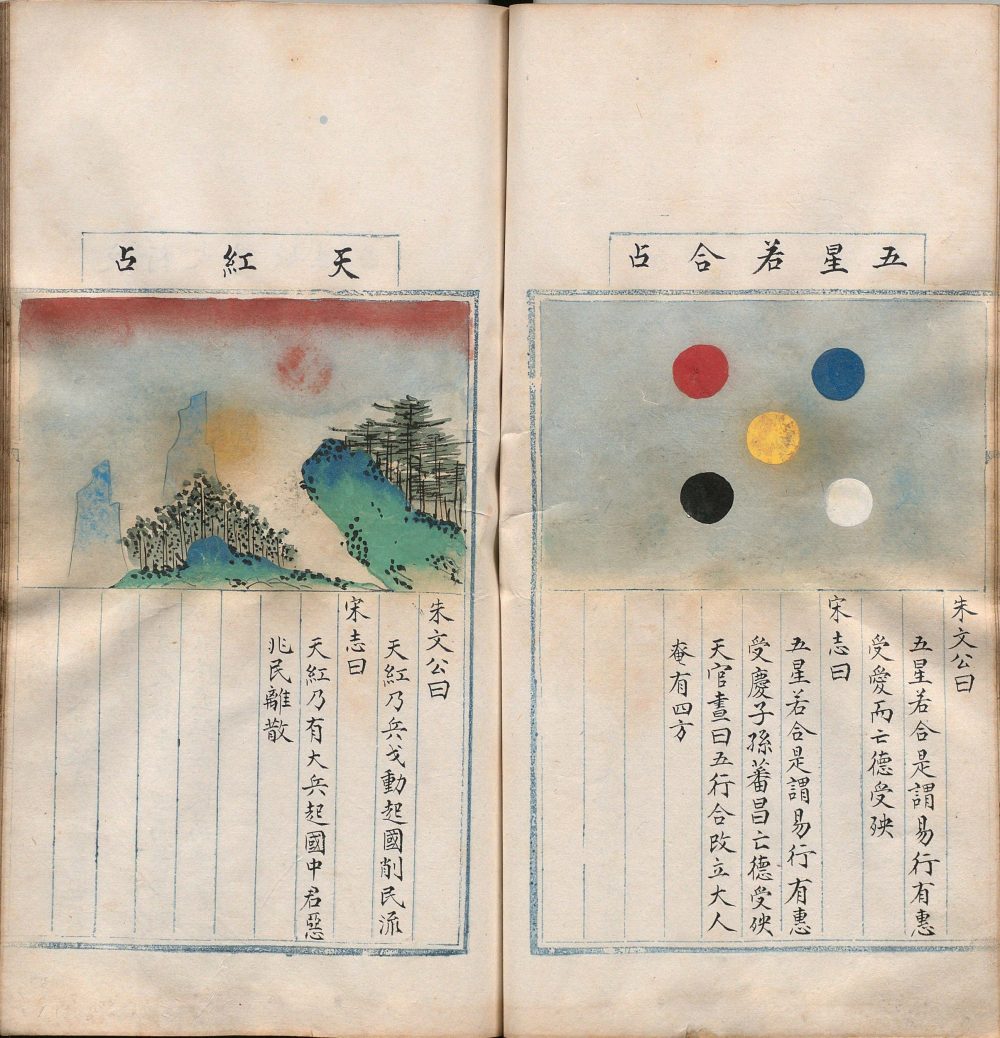 五星若合占
朱文公曰
五星若合是謂易行有惪
受愛而亡德受殃
宋志曰
五星若合是謂易行有惪
受慶子孫蕃昌亡德受殃
天官書曰五行合改立大人
奄有四方
天紅占
朱文公曰
天紅乃兵戈動起國削民派
宋志曰
天紅乃有大兵起國中君惡
兆民離散